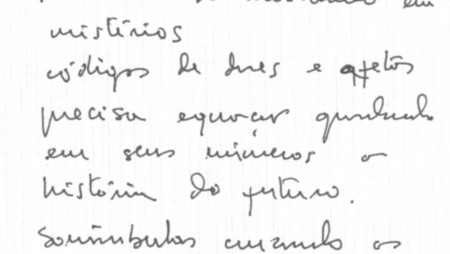 em
mistérios
códigos de dores e afetos
precisa equivocar guardando
em seus números a
história do futuro.
sonâmbulos os